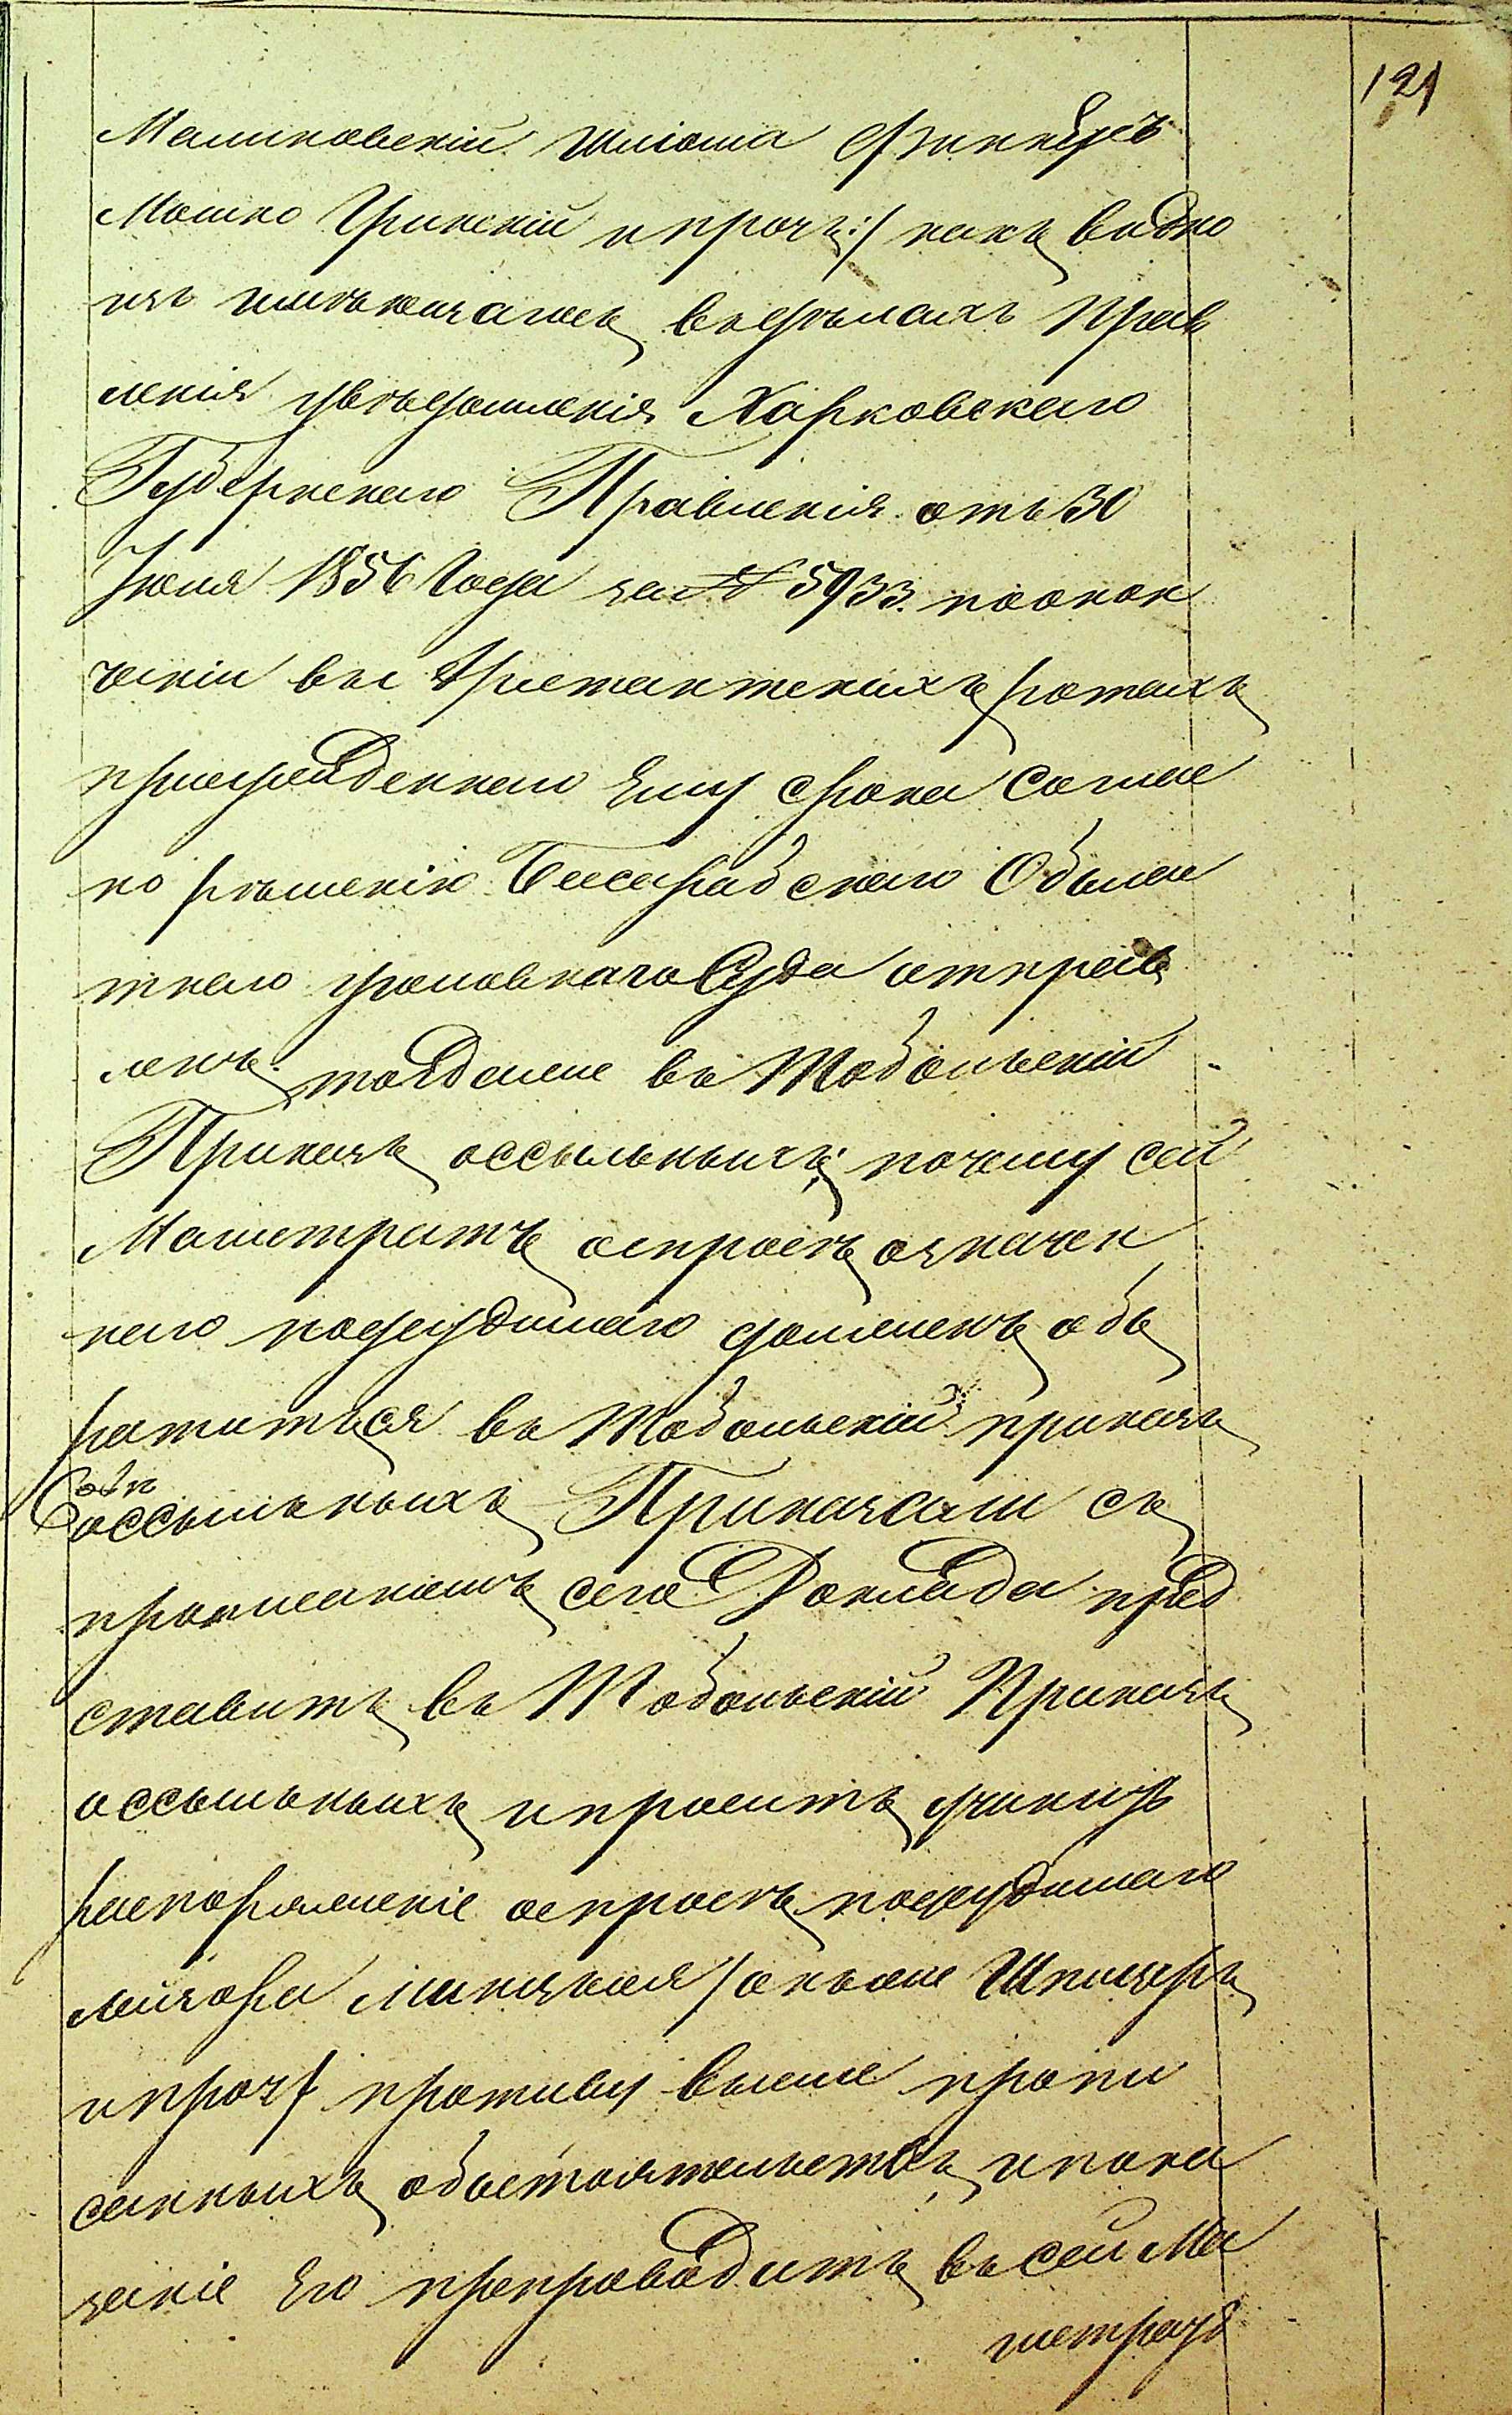 121
Машковскій Шліома Финкеръ
Мошко Гринскій и проч:/ какъ видно
изъ имѣющагось въ дѣлахъ Прав
ленія увѣдомленія Харковскаго
Губернскаго Правленія отъ 30
Іюля 1856 года за № 5933. по окон
чаніи въ Арестантскихъ ротахъ
присужденнаго Ему срока Соглас
но рѣшенію Бессарабскаго Облас
тнаго уголовнаго Суда отправ
ленъ таковъ въ Тобольскій
Приказъ оссыльныхъ; почему сей
Магистратъ о спросѣ означен
наго подсудимаго долженъ об
ратиться въ Тобольскій приказъ
оссыльныхъ Приказали съ
прописаніемъ сего Доклада пред
ставить въ Тобольскій Приказъ
оссыльныхъ и просить учинить
распоряженіе о спросѣ подсудимаго
Лейзора /онже Шпилеръ
и проч/ противу выше пропи
санныхъ обстоятельствъ и пока
заніе Его препроводить въ сей Ма
гистратъ